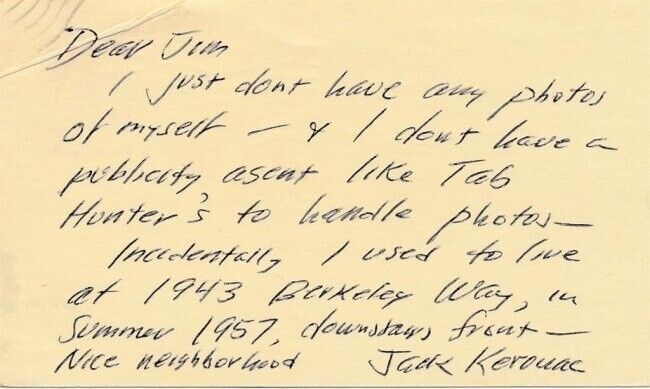 Dear Jim
I just dont have any photos
of myself — & I dont have a
publicity agent like Tab
Hunter's to handle photos—
Incidentally I used to live
at 1943 Berkeley Way, in
Summer 1957, downstairs front—
Nice neighborhood Jack Kerouac